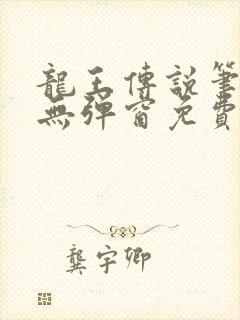 龍王傳說筆
無彈窗免費
龔宇卿